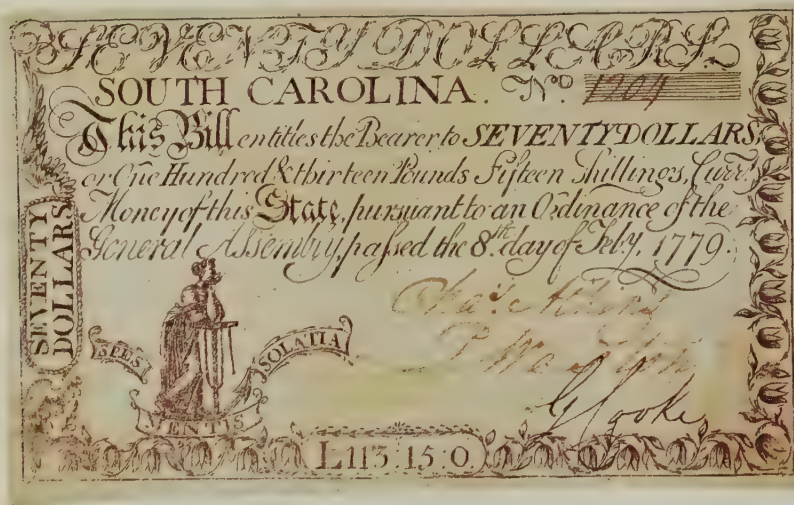 SEVENTY DOLLARS.
SOUTH CAROLINA. No. 1204
This Bill entitles the Bearer to SEVENTY DOLLARS,
or One Hundred & thirteen Pounds Fifteen Shillings, Curr.t
Money of this State, pursuant to an Ordinance of the
General Assembly, passed the 8th. day of Feby. 1779.
SEVENTY
DOLLARS
SPES
MENTIS
SOLATIA
G Cooke
L113:15:0